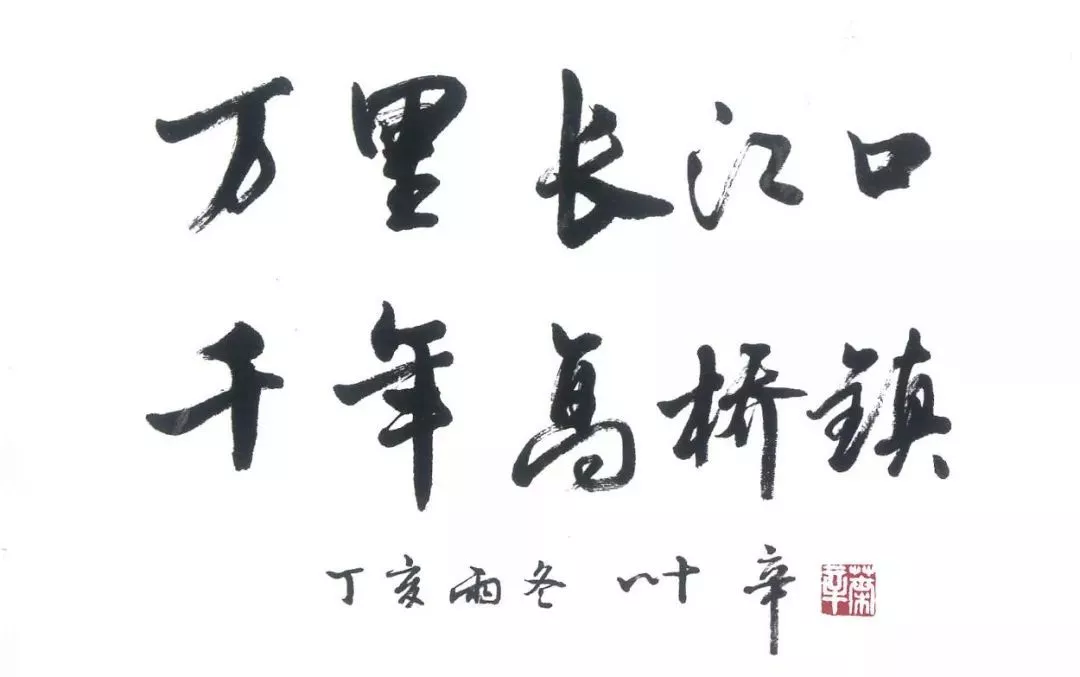 万里长江口
千年高桥镇
丁亥雨冬 叶辛
葉辛